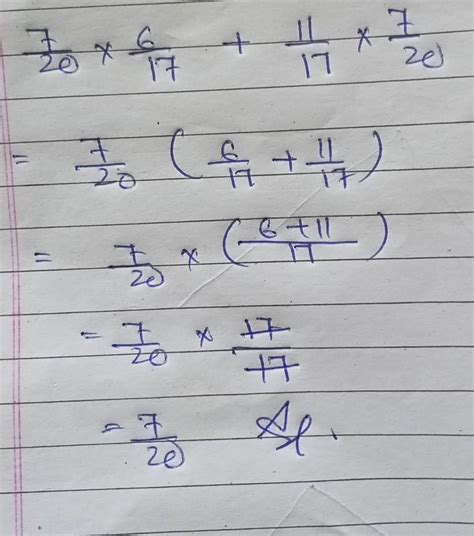 7/20 × 6/17 + 11/17 × 7/20
= 7/20 (6/17 + 11/17)
= 7/20 × (6+11/17)
= 7/20 × 17/17
= 7/20